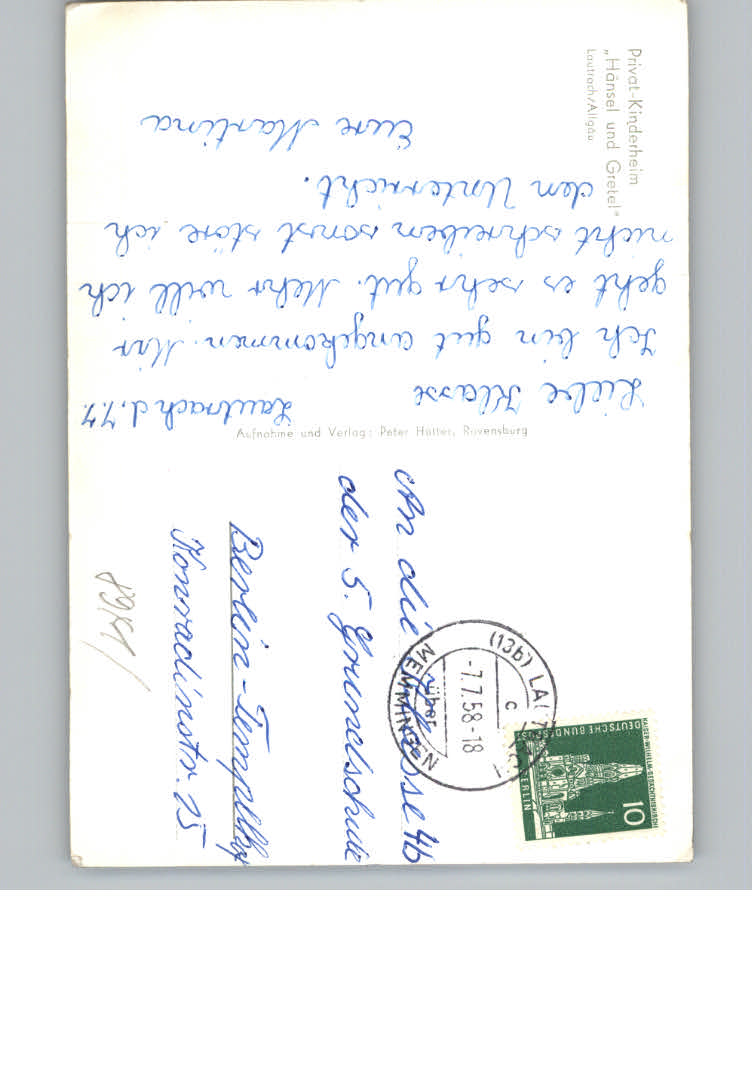 Privat-Kinderheim
„Hänsel und Gretel"
Lautrach/Allgäu
Lautrach d. 7.7.
Liebe Klasse
Ich bin gut angekommen. Mir
geht es sehr gut. Mehr will ich
nicht schreiben sonst störe ich
den Unterricht.
Eure Martina
Aufnahme und Verlag: Peter Hutter, Ravensburg
An die Klasse 4b
der 5. Grundschule
Berlin-Templhf
Konradinstr. 15
(13b) LAUTRACH
c
-7.7.58-18
über
MEMMINGEN
DEUTSCHE BUNDESPOST
BERLIN
KAISER-WILHELM-GEDÄCHTNISKIRCHE
10